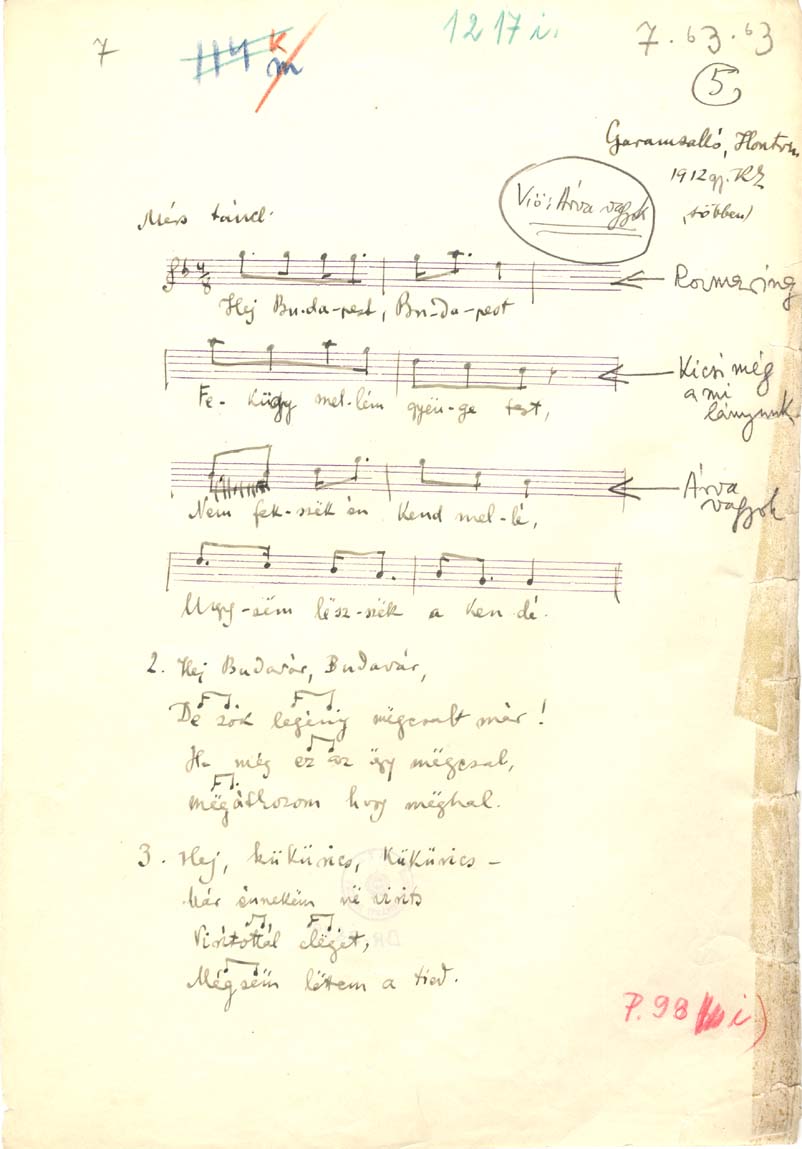 7
1217 i.
7. 63. 63
5
Garamsalló, Hontvm.
1912 gy. KZ
(többen)
Viö: Árva vagyok
Mérs táncl.
4/8
Hej Bu-da-pest, Bu-da-pest
Rozmaring
Fe- kügy mel-lém gyën-ge test,
Kicsi még
a mi
lányunk
Nem fek-szëk én kend mel-lé,
Árva
vagyok
Ugy-sëm lësz-szëk a ken dé.
2. Hej Budavár, Budavár,
De sok legény mëgcsalt már!
Ha még ez az ëgy mëgcsal,
mëgátkozom hogy mëghal.
3. Hej, kükürics, kükürics –
bár ënnekëm në virits
Virítottál elëget,
Mégsëm lëttem a tied.
P. 98 i)